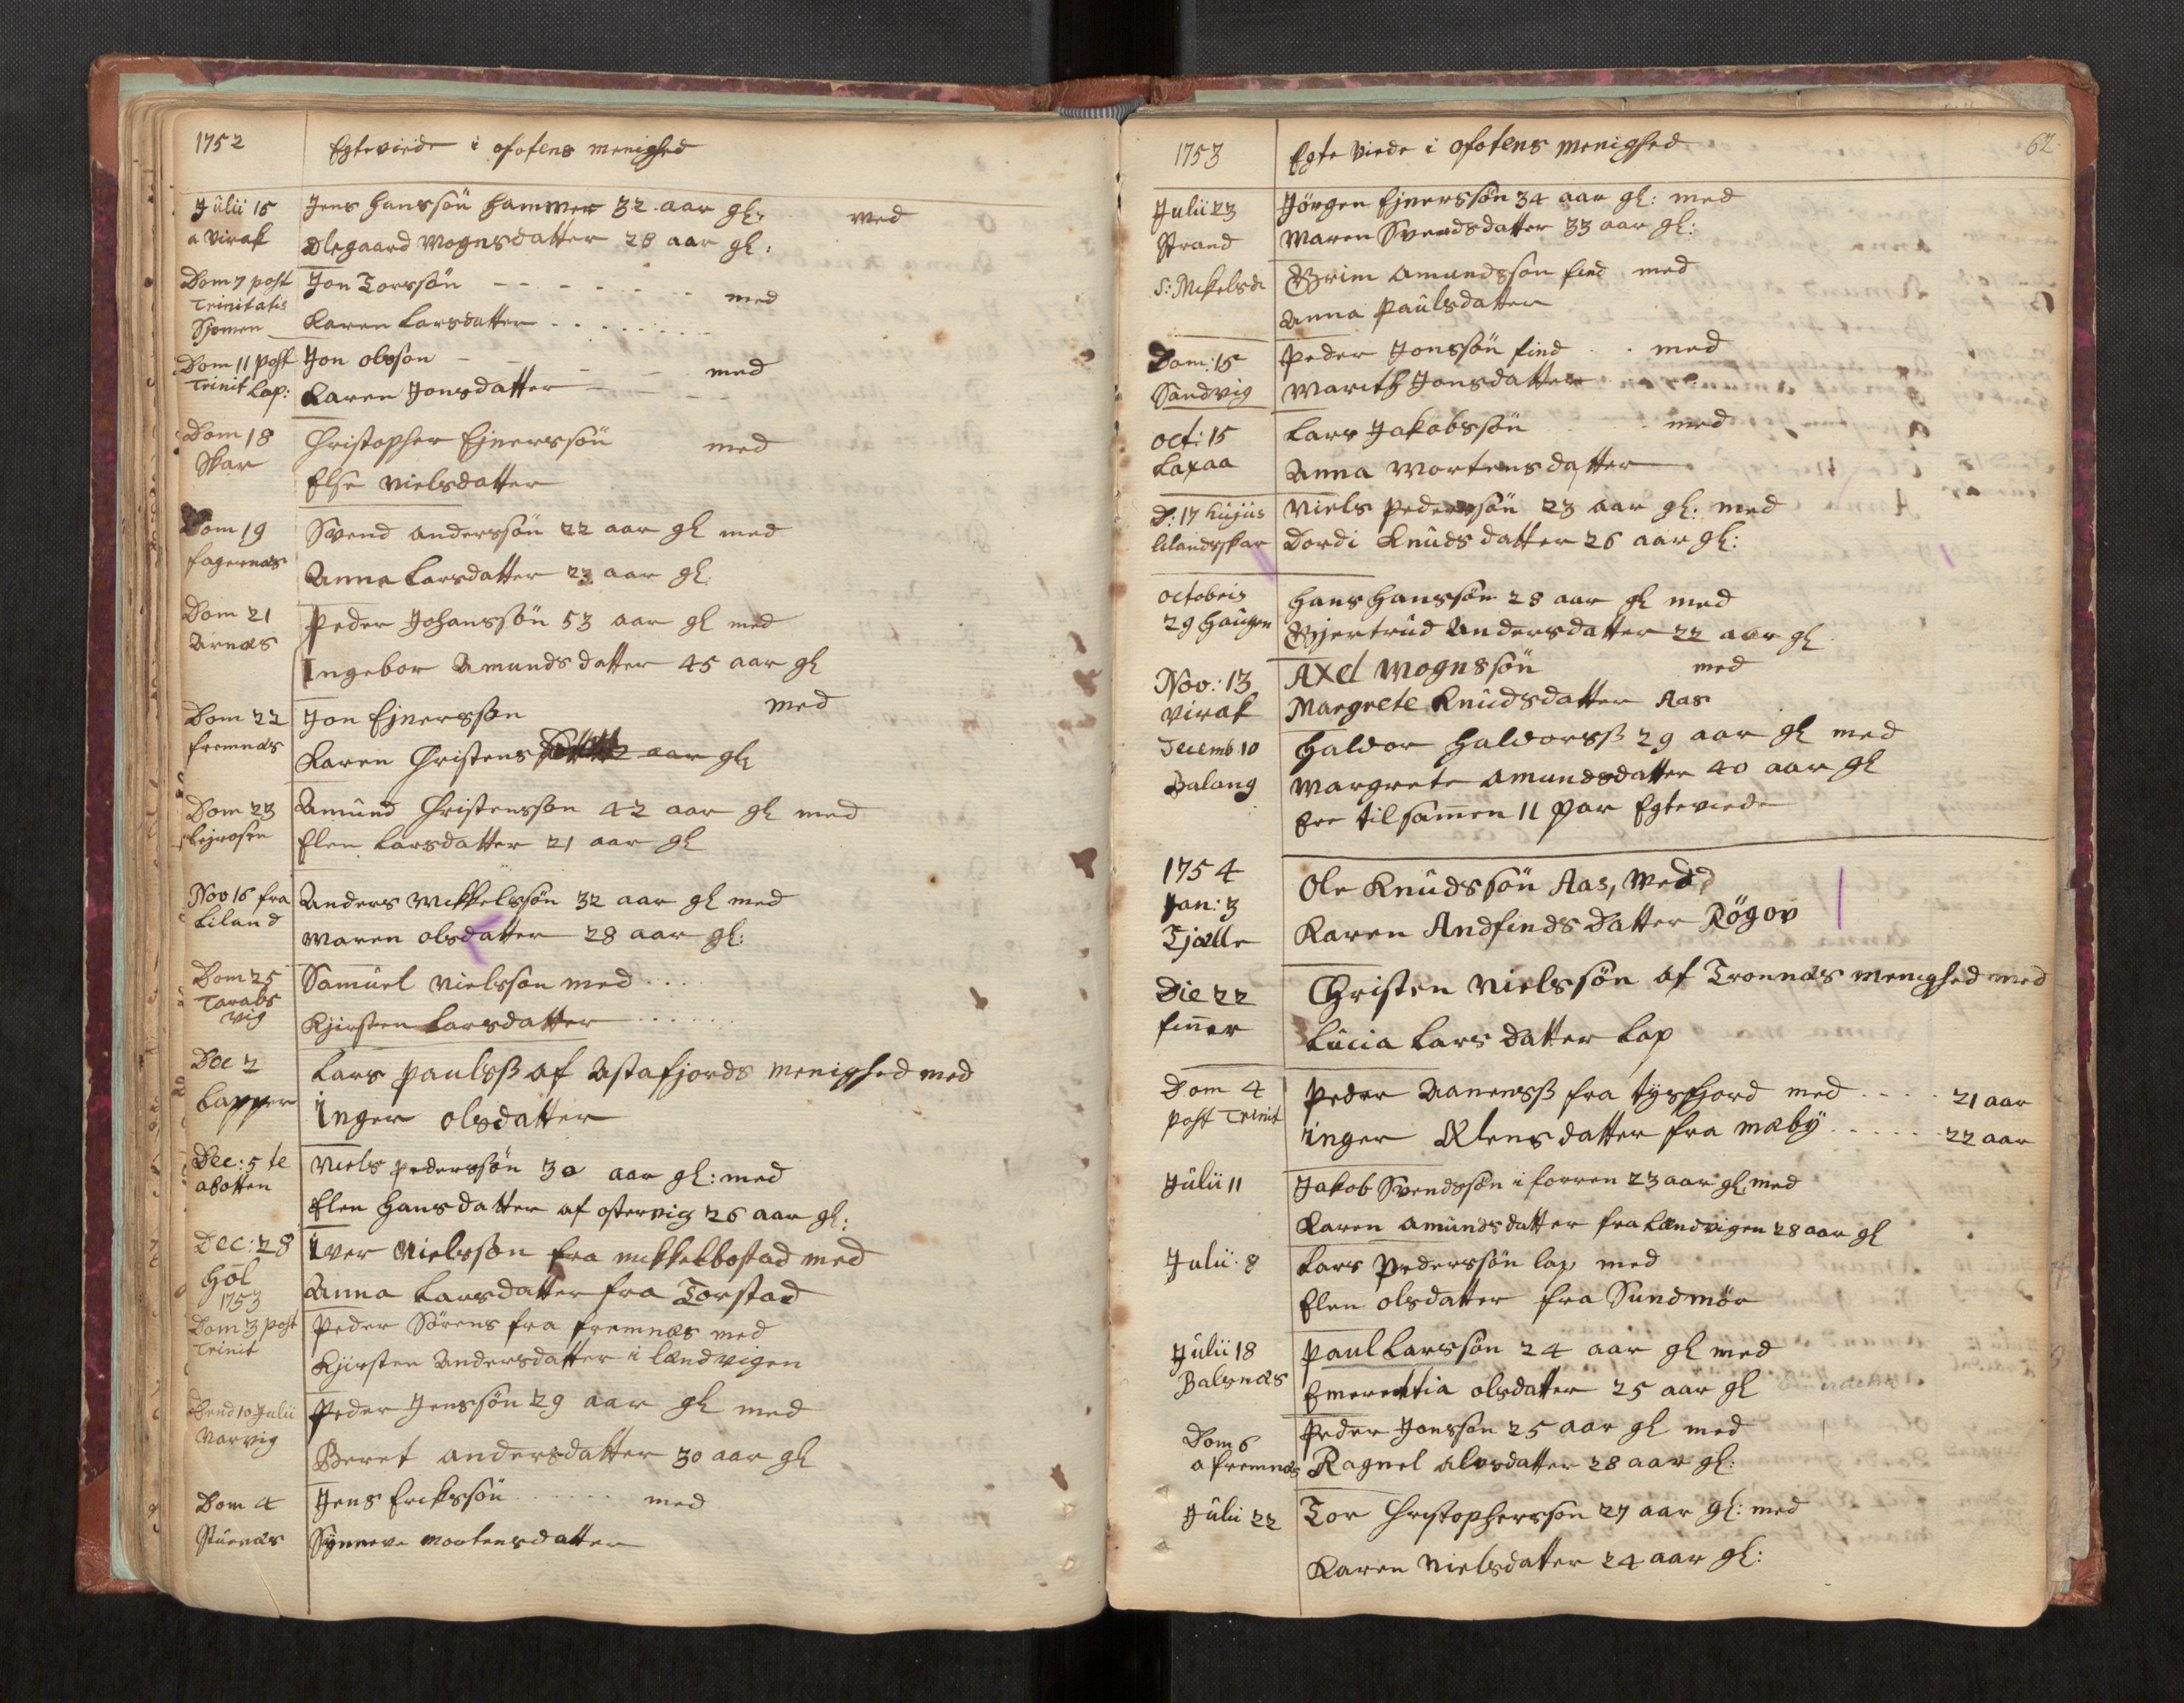 1752
Egteviede i ofotens menighed
Julii 16
a Virak
Jens Hanssön Hammer 32 aar gl: med
Olegaard Mognsdatter 28 aar gl:
Dom 7 post
Trinitatis
Sjomen
Jon Torssön - - - - - - - med
Karen Larsdatter . . . . . . . .
Dom 11 post
Trinit Lap:
Jon olsson - - - - med
Karen Jonsdatter - - - -
Dom 18
Skar
Christopher Ejnerssön med
Else Nielsdatter
Dom 19
fagernæs
Svend Anderssön 22 aar gl med
Anna Larsdatter 23 aar gl:
Dom 21
Arnæs
Peder Johanssön 53 aar gl med
Ingebor Amunds datter 45 aar gl
Dom 22
fremnæs
Jon Ejnersson med
Karen Christens aar gl
Dom 23
Amund Christensson 42 aar gl med
Elen Larsdatter 21 aar gl
Nov 16 fra
Liland
Anders Mikkelssön 32 aar gl med
Maren olsdatter 28 aar gl:
Dom 25
Tarabs
vig
Samuel Nielsson med . . . .
Kjirsten Larsdatter . . . . . .
Dec 2
Lapper
Lars Paulsß af Astafjords menighed med
Inger olsdatter
Dec: 5 te
a botten
Niels pederssön 30 aar gl: med
Elen Hansdatter af ostervig 26 aar gl:
Dec: 28
Hol
Iver Nielsson fra mikkelbostad med
Anna Larsdatter fra Torstad
1753
Dom 3 post
Trinit
Peder Sörens fra fremnæs med
Kjirsten Andersdatter i Lændvigen
Dend 10 Julii
Narvig
Peder Jenssön 29 aar gl med
Beret andersdatter 30 aar gl
Dom 4
Stuenæs
Jens Erikssön . . . . . . med
Synneve Mortensdatter
1753
Egte viede i ofotens menighed
62
Julii 23
Strand
Jörgen Ejnerssön 34 aar gl: med
Maren Svendsdatter 33 aar gl:
S: Mikelsd:
Grim Amundsson find med
Anna Paulsdatter
Dom: 15
Sandvig
Peder Jonssön find . . med
Marith Jonsdatter
oct: 15
Laxaa
Lars Jakobssön med
Anna Mortensdatter
D: 17 hujus
lilandsskar
Niels Pederssön 23 aar gl: med
Dordi Knudsdatter 26 aar gl:
octobris
29 Haugen
Hans Hanssön 28 aar gl med
Gjertrud Andersdatter 22 aar gl
Nov: 13
virak
Axel Mognssön med
Margrete Knudsdatter Aas
Decemb. 10
Balang
Haldor Haldorsß 29 aar gl med
Margrete Amundsdatter 40 aar gl
Ere tilsam̄en 11 par Egteviede
1754
Jan: 3
Tjælle
Ole Knudssön Aas, Med
Karen Andfinds datter Rögov
Die 22
fin̄er
Christen Nielssön af Tronnæs menighed med
Lucia Lars datter Lap
Dom 4
post Trinit
Peder Aanensß fra tysfjord med . . . . 21 aar
inger Elens datter fra mæby . . . . . 22 aar
Julii 11
Jakob Svendssön i forren 23 aar gl med
Karen Amundsdatter fra Lændvigen 28 aar gl
Julii 8
Lars Pederssön lap med
Elen olsdatter fra Sundmör
Julii 18
Balsnæs
Paul Larssön 24 aar gl med
Emerentia olsdatter 25 aar gl
Dom 6
a fremnæs
Peder Jonsson 25 aar gl med
Ragnel Alvsdatter 28 aar gl:
Julii 22
Tor Christophersson 27 aar gl: med
Karen Nielsdatter 24 aar gl: